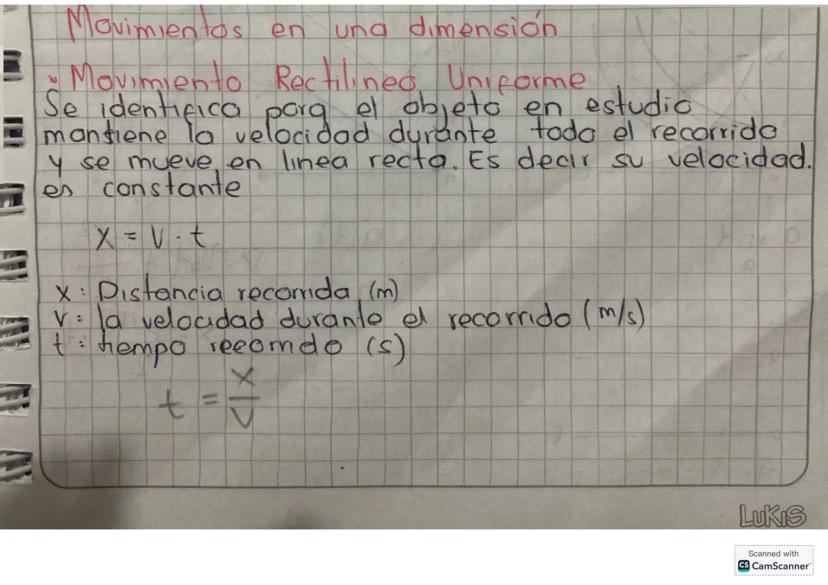 Movimientos en una dimensión
Movimiento Rectilineo Uniforme
Se identifica porq el objeto en estudio
mantiene la velocidad durante todo el recorrido
y se mueve en linea recta. Es decir su velocidad.
es constante
X = V · t
X: Distancia recorrida (m)
V: la velocidad durante el recorrido (m/s)
t: tiempo recorrido (s)
t = X/V
LUKIS
Scanned with
CS CamScanner